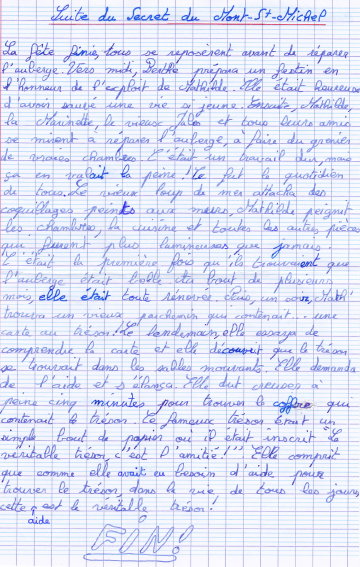 Suite du Secret du Mont-St-Michel
La fête finie, tous se reposèrent avant de réparer
l'auberge. Vers midi, Berthe prépara un festin en
l'honneur de l'exploit de Mathilde. Elle était heureuse
d'avoir sauvé une vie si jeune. Ensuite, Mathilde,
la Marinette, le vieux Jules et tous leurs amis
se mirent à réparer l'auberge, à faire du grenier
de vraies chambres. C'était un travail dur, mais
ça en valait la peine ! Ce fut le quotidien
de tous. Le vieux loup de mer attacha des
coquillages peints aux murs, Mathilde peignit
les chambres, la cuisine et toutes les autres pièces
qui furent plus lumineuses que jamais.
C'était la première fois qu'ils trouvaient que
l'auberge était belle. Au bout de plusieurs
mois, elle était toute rénovée. Puis, un
trouva un vieux parchemin qui contenait... une
carte au trésor ! Le lendemain, elle essaya de
comprendre la carte et elle découvrit que le trésor
se trouvait dans les sables mouvants. Elle demanda
de l'aide et s'élança. Elle dut creuser à
peine cinq minutes pour trouver le coffre qui
contenait le trésor. Ce fameux trésor était un
simple bout de papier où il était inscrit "Le
véritable trésor, c'est l'amitié !" Elle comprit
que comme elle avait eu besoin d'aide pour
trouver le trésor, dans la vie de tous les jours,
cette aide est le véritable trésor !
FIN !